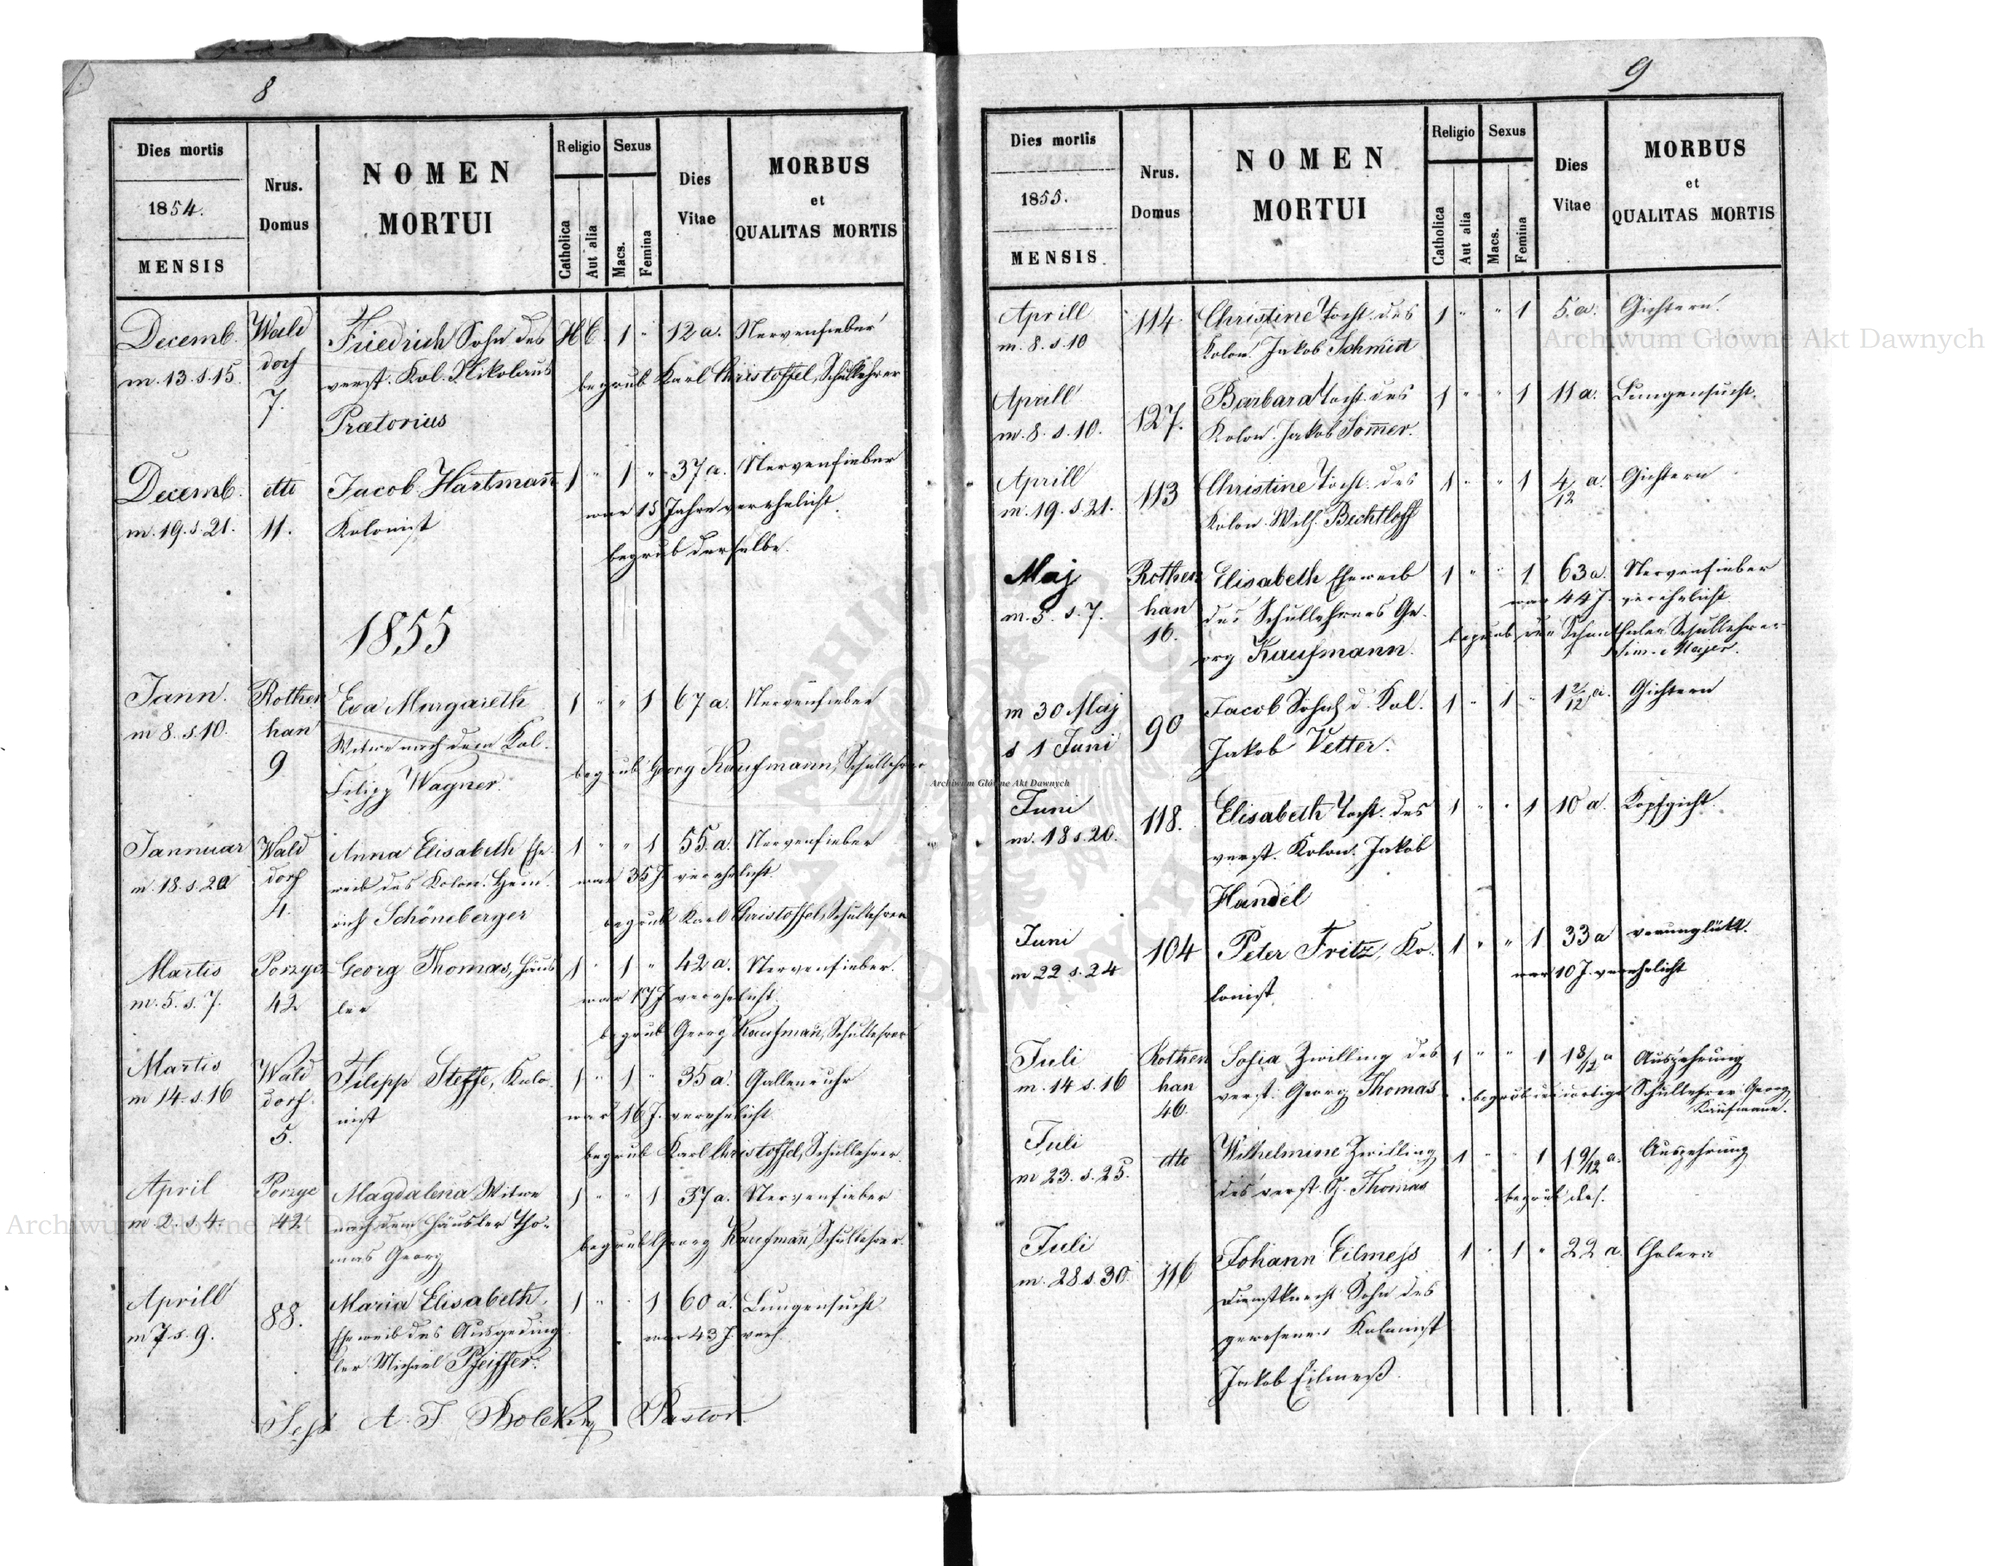 8
Dies mortis
1854.
MENSIS
Nrus.
Domus
NOMEN
MORTUI
Religio
Catholica
Aut alia
Sexus
Macs.
Femina
Dies
Vitae
MORBUS
et
QUALITAS MORTIS
Decemb. Wald Friedrich Sohn des H C. 1 " 12 a. Nervenfieber
m. 13. s. 15. dorf verst. Kol. Nikolaus begrub Karl Christoffel, Schullehrer
7. Prætorius
Decemb. dtto Jacob Hartmañ 1 " 1 " 37 a. Nervenfieber
m. 19. s. 21. 11. Kolonist war 15 Jahre verehelicht.
begrub derselbe.
1855
Jann. Rothen Eva Margareth 1 " " 1 67 a. Nervenfieber
m 8. s. 10. han Witwe nach dem Kol.
9 Filipp Wagner. begrub Georg Kaufmann, Schullehrer
Jannuar Wald Anna Elisabeth Ehe- 1 " " 1 55. a. Nervenfieber
m. 18. s. 20 dorf weib des Kolon. Hein- war 35 J. verehelicht
4. rich Schöneberger begrub Karl Christoffel, Schullehrer
Martis Porzyce Georg Thomas, Häus 1 " 1 " 42 a. Nervenfieber.
m. 5. s. 7. 42. ler war 17 J. verehelicht
begrub Georg Kaufmañ, Schullehrer
Martis Wald Filipp Steffe, Kolo- 1 " 1 " 35 a.
m 14. s. 16 dorf. nist war 16 J. verehelicht
5. begrub Karl Christoffel, Schullehrer
April Porzyce Magdalena Witwe 1 " " 1 37 a. Nervenfieber
m 2. s. 4. 42. nach dem Häusler Tho-
mas Georg begrub Georg Kaufmañ, Schullehrer.
Aprill 88. Maria Elisabeth, 1 " " 1 60 a. Lungensucht
m 7. s. 9. Eheweib des Ausgeding war 43 J. verh.
ler Michael Pfeiffer.
A. Pastor.
9
Dies mortis
1855.
MENSIS
Nrus.
Domus
NOMEN
MORTUI
Religio
Catholica
Aut alia
Sexus
Macs.
Femina
Dies
Vitae
MORBUS
et
QUALITAS MORTIS
Aprill 114. Christine Tocht. des 1 " " 1 5. a. Gichtern.
m. 8. s. 10 Kolon. Jakob Schmidt
Aprill 127. Barbara Tocht. des 1 " " 1 11 a. Lungensucht.
m. 8. s. 10. Kolon. Jakob Som̄er.
Aprill 113 Christine Tocht. des 1 " " 1 4/12 a. Gichtern
m. 19. s. 21. Kolon. Wilh. Bechtloff
Maj Rothen Elisabeth Eheweib 1 " " 1 63 a. Nervenfieber
m. 5. s. 7. han des Schullehrers Ge- war 44 J. verehelicht
16. org Kaufmann. begrub der Schullehrer
Mayer.
m 30 Maj 90 Jacob Sohn d. Kol. 1 " 1 " 1 2/12 a. Gichtern
s 1 Juni Jakob Vetter.
Juni 118. Elisabeth Tocht. des 1 " " 1 10 a. Kopfgicht.
m. 18 s. 20. verst. Kolon. Jakob
Handel
Juni 104 Peter Fritz, Ko- 1 " " 1 33 a verunglükt.
m 22 s. 24 lonist. war 10 J. verehelicht
Juli Rothen Sofia Zwilling des 1 " " 1 1 8/12 a Auszehrung
m. 14 s. 16 han verst. Georg Thomas begrub Schullehrer Georg
46. Kaufmann.
Juli dtto Wilhelmine Zwilling 1 " " 1 1 9/12 a. Auszehrung
m 23. s. 25. des verst. G. Thomas begrub
Juli 116 Johann Eilmess 1 " 1 " 22 a. Cholera
m. 28 s. 30 Dienstknecht Sohn des
gewesenen Kolonist
Jakob Eilmeß.
Archiwum Główne Akt Dawnych
Archiwum Główne Akt Dawnych
Archiwum Główne Akt Dawnych